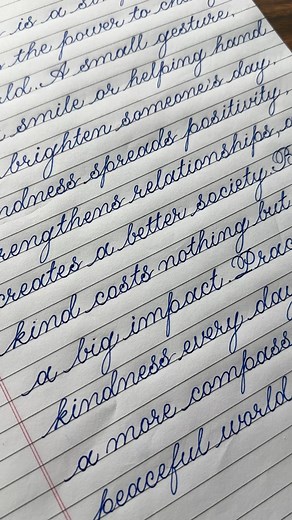 is a
the power to
A small gesture,
smile or helping hand
brighten someone's day.
spreads positivity,
relationships,
creates a better society.
kind costs nothing but
a big impact.
kindness every day
a more
peaceful world